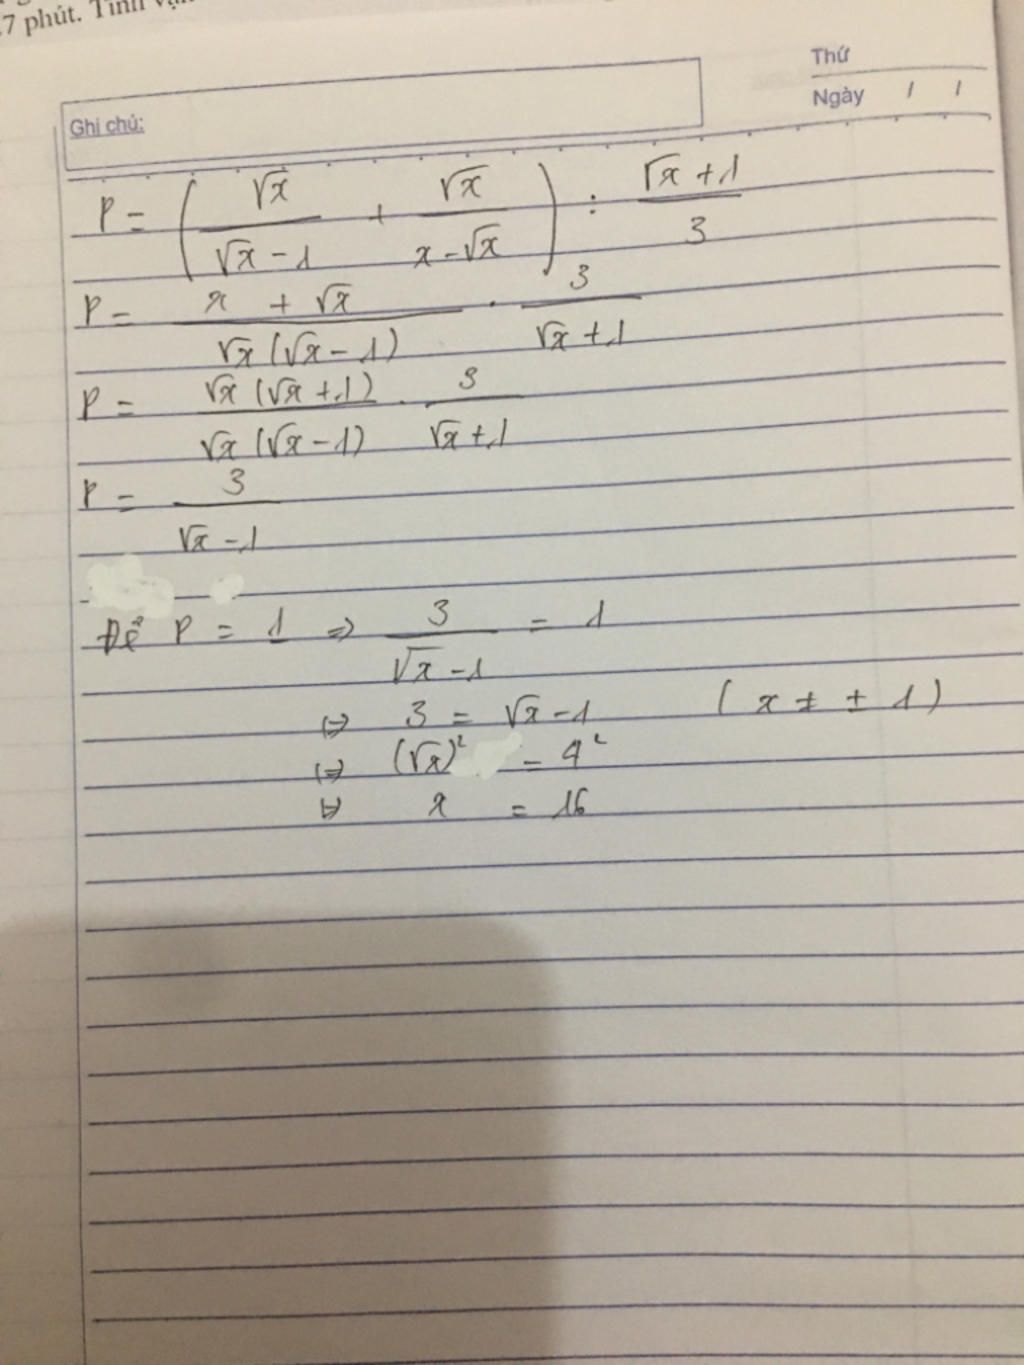 7 phút. Tính vận
Thứ
Ghi chú:
Ngày / /
P = ( √x / (√x - 1) + √x / (x - √x) ) : (√x + 1) / 3
P = (x + √x) / (√x (√x - 1)) . 3 / (√x + 1)
P = (√x (√x + 1)) / (√x (√x - 1)) . 3 / (√x + 1)
P = 3 / (√x - 1)
Để P = 1 => 3 / (√x - 1) = 1
(=) 3 = √x - 1 ( x ≠ ± 1 )
(=) (√x)² = 4²
(=) x = 16